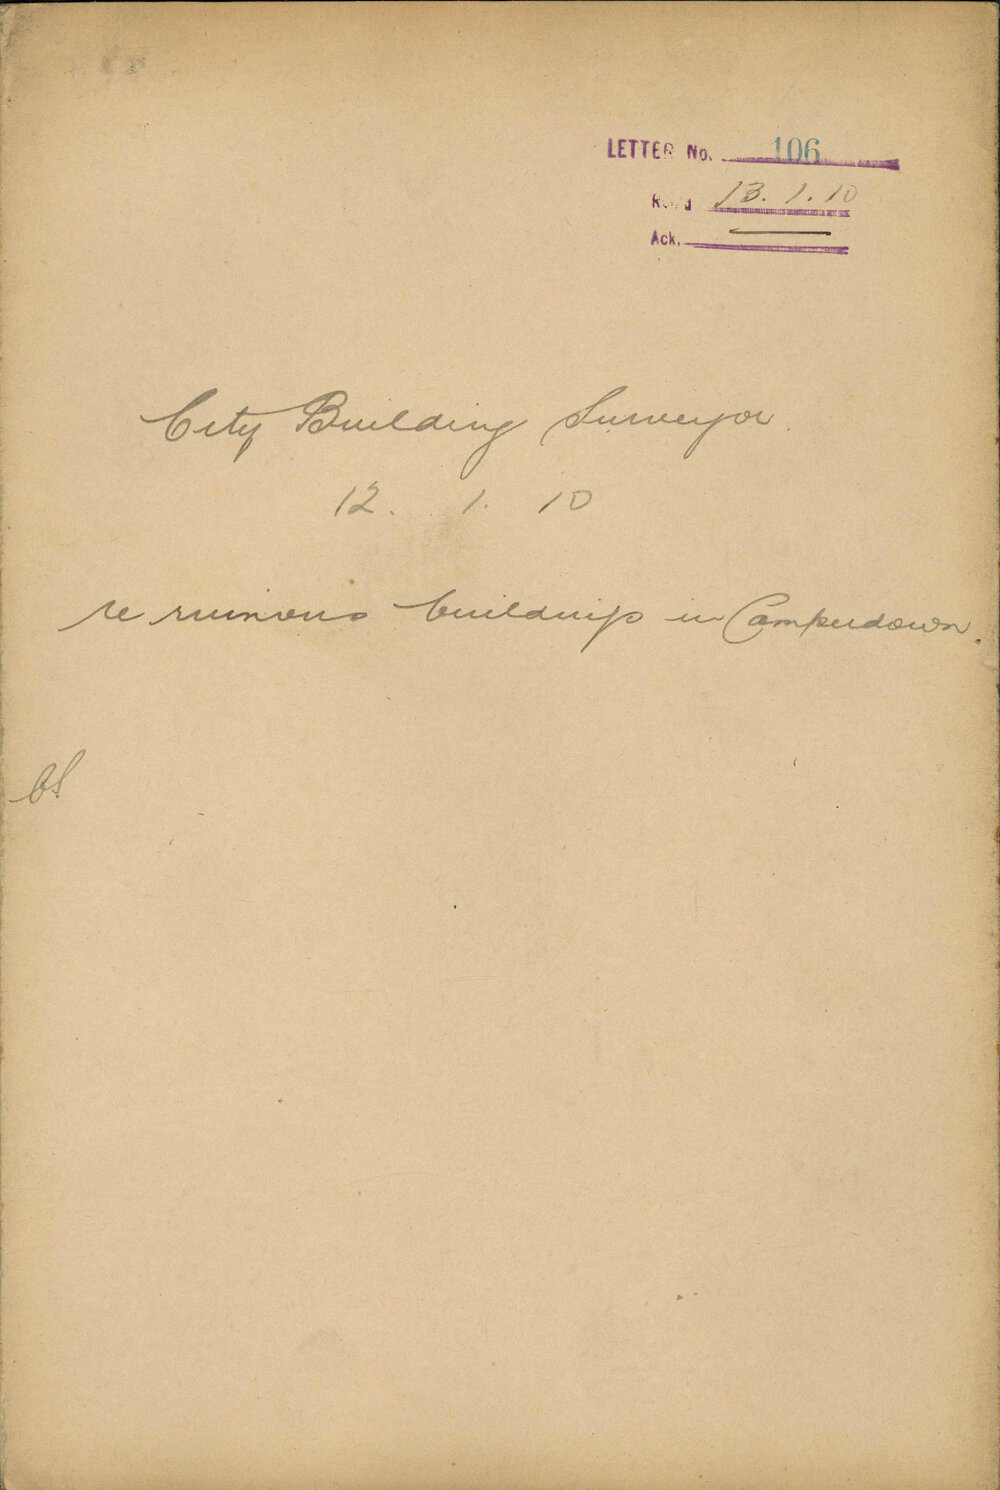 LETTER No. 106
Recd 13.1.10
Ack.
City Building Surveyor.
12. 1. 10
re ruinous buildings in Camperdown.